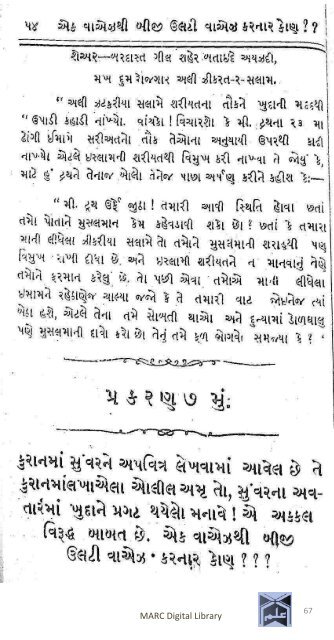 ૫૪ એક વાએઝથી બીજી ઉલટી વાએઝ કરનાર કોણ? ?
શેઅર—બરદાસ્ત ગીલ શહેર બતાકદે અયઝદી,
મખ દુમ રોજગાર અલી ઝીકરત-ર-સલામ.
" અલી ઝટકરીયા સલામે શરીયતના તૌકને ખુદાની મદદથી
" ઉપાડી કહાડી નાંખ્યો. વાંચકો! વિચારશો કે મી. ટ્રથના રદ મા
ઢોંગી ઈમામે સરીઅતનો તૌક તેઓના અનુયાયી ઉપરથી કાઢી
નાખ્યો એટલે ઇસ્લામની શરીયતથી વિમુખ કરી નાખ્યા તે જોયું કે,
માટે હું ટ્રથને તેનાજ બોલો તેનેજ પાછા અર્પણ કરીને કહીશ કે:—
" મી. ટ્રથ ઉર્ફે જુઠા! તમારી આવી સ્થિતિ હોવા છતાં
તમો પોતાને મુસલમાન કેમ કહેવડાવી શકો છો? છતાં કે તમારા
માની લીધેલા ઝીકરીયા સલામે તો તમોને મુસલમાની શરાહથી પણ
વિમુખ રાખી દીધા છે. અને ઇસ્લામી શરીયતને ન માનવાનું તેણે
તમોને ફરમાન કરેલું છે. તો પછી એવા તમોએ માની લીધેલા
ઈમામને રહેઠાણેજ ચાલ્યા જજો કે તે તમારી વાટ જોઇનેજ ત્યાં
બેઠા હશે, એટલે તેના તમે સોબતી થાઓ અને દુન્યામાં ડોળઘાલુ
પણે મુસલમાની દાવો કરો છો તેનું તમે ફળ ભોગવો સમજ્યા કે ? '
પ્રકરણ ૭ મું.
કુરાનમાં સુંવરને અપવિત્ર લેખવામાં આવેલ છે તે
કુરાનમાંલખાએલા ઓલીલ અમ્ર તો, સુંવરના અવ-
તારમાં ખુદાને પ્રગટ થયેલો મનાવે! એ અક્કલ
વિરૂદ્ધ બાબત છે. એક વાએઝથી બીજી
ઉલટી વાએઝ કરનાર કોણ ???
MARC Digital Library
67